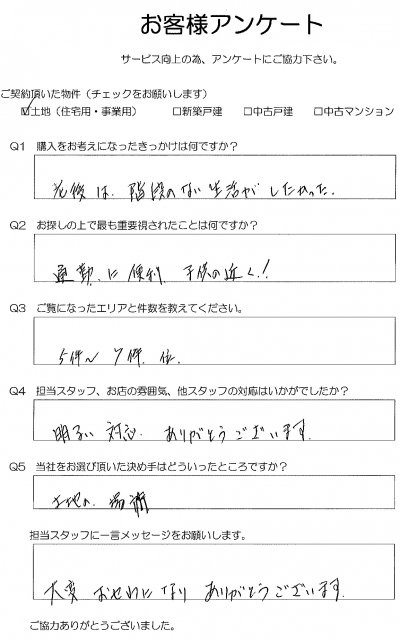 お客様アンケート
サービス向上の為、アンケートにご協力下さい。
ご契約頂いた物件（チェックをお願いします）
☑土地（住宅用・事業用） □新築戸建 □中古戸建 □中古マンション
Q1 購入をお考えになったきっかけは何ですか？
老後は、階段のない生活がしたかった.
Q2 お探しの上で最も重要視されたことは何ですか？
通勤に便利、子供の近く!!
Q3 ご覧になったエリアと件数を教えてください。
5件〜7件 位.
Q4 担当スタッフ、お店の雰囲気、他スタッフの対応はいかがでしたか？
明るい対応. ありがとうございます.
Q5 当社をお選び頂いた決め手はどういったところですか？
土地の、場所
担当スタッフに一言メッセージをお願いします。
大変 おせわになり ありがとうございます.
ご協力ありがとうございました。